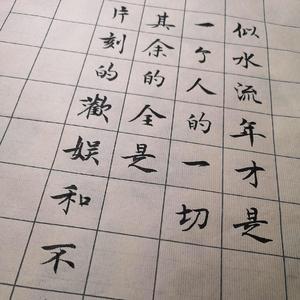 似水流年才是
一个人的一切
其余的全是
片刻的歡娱和不